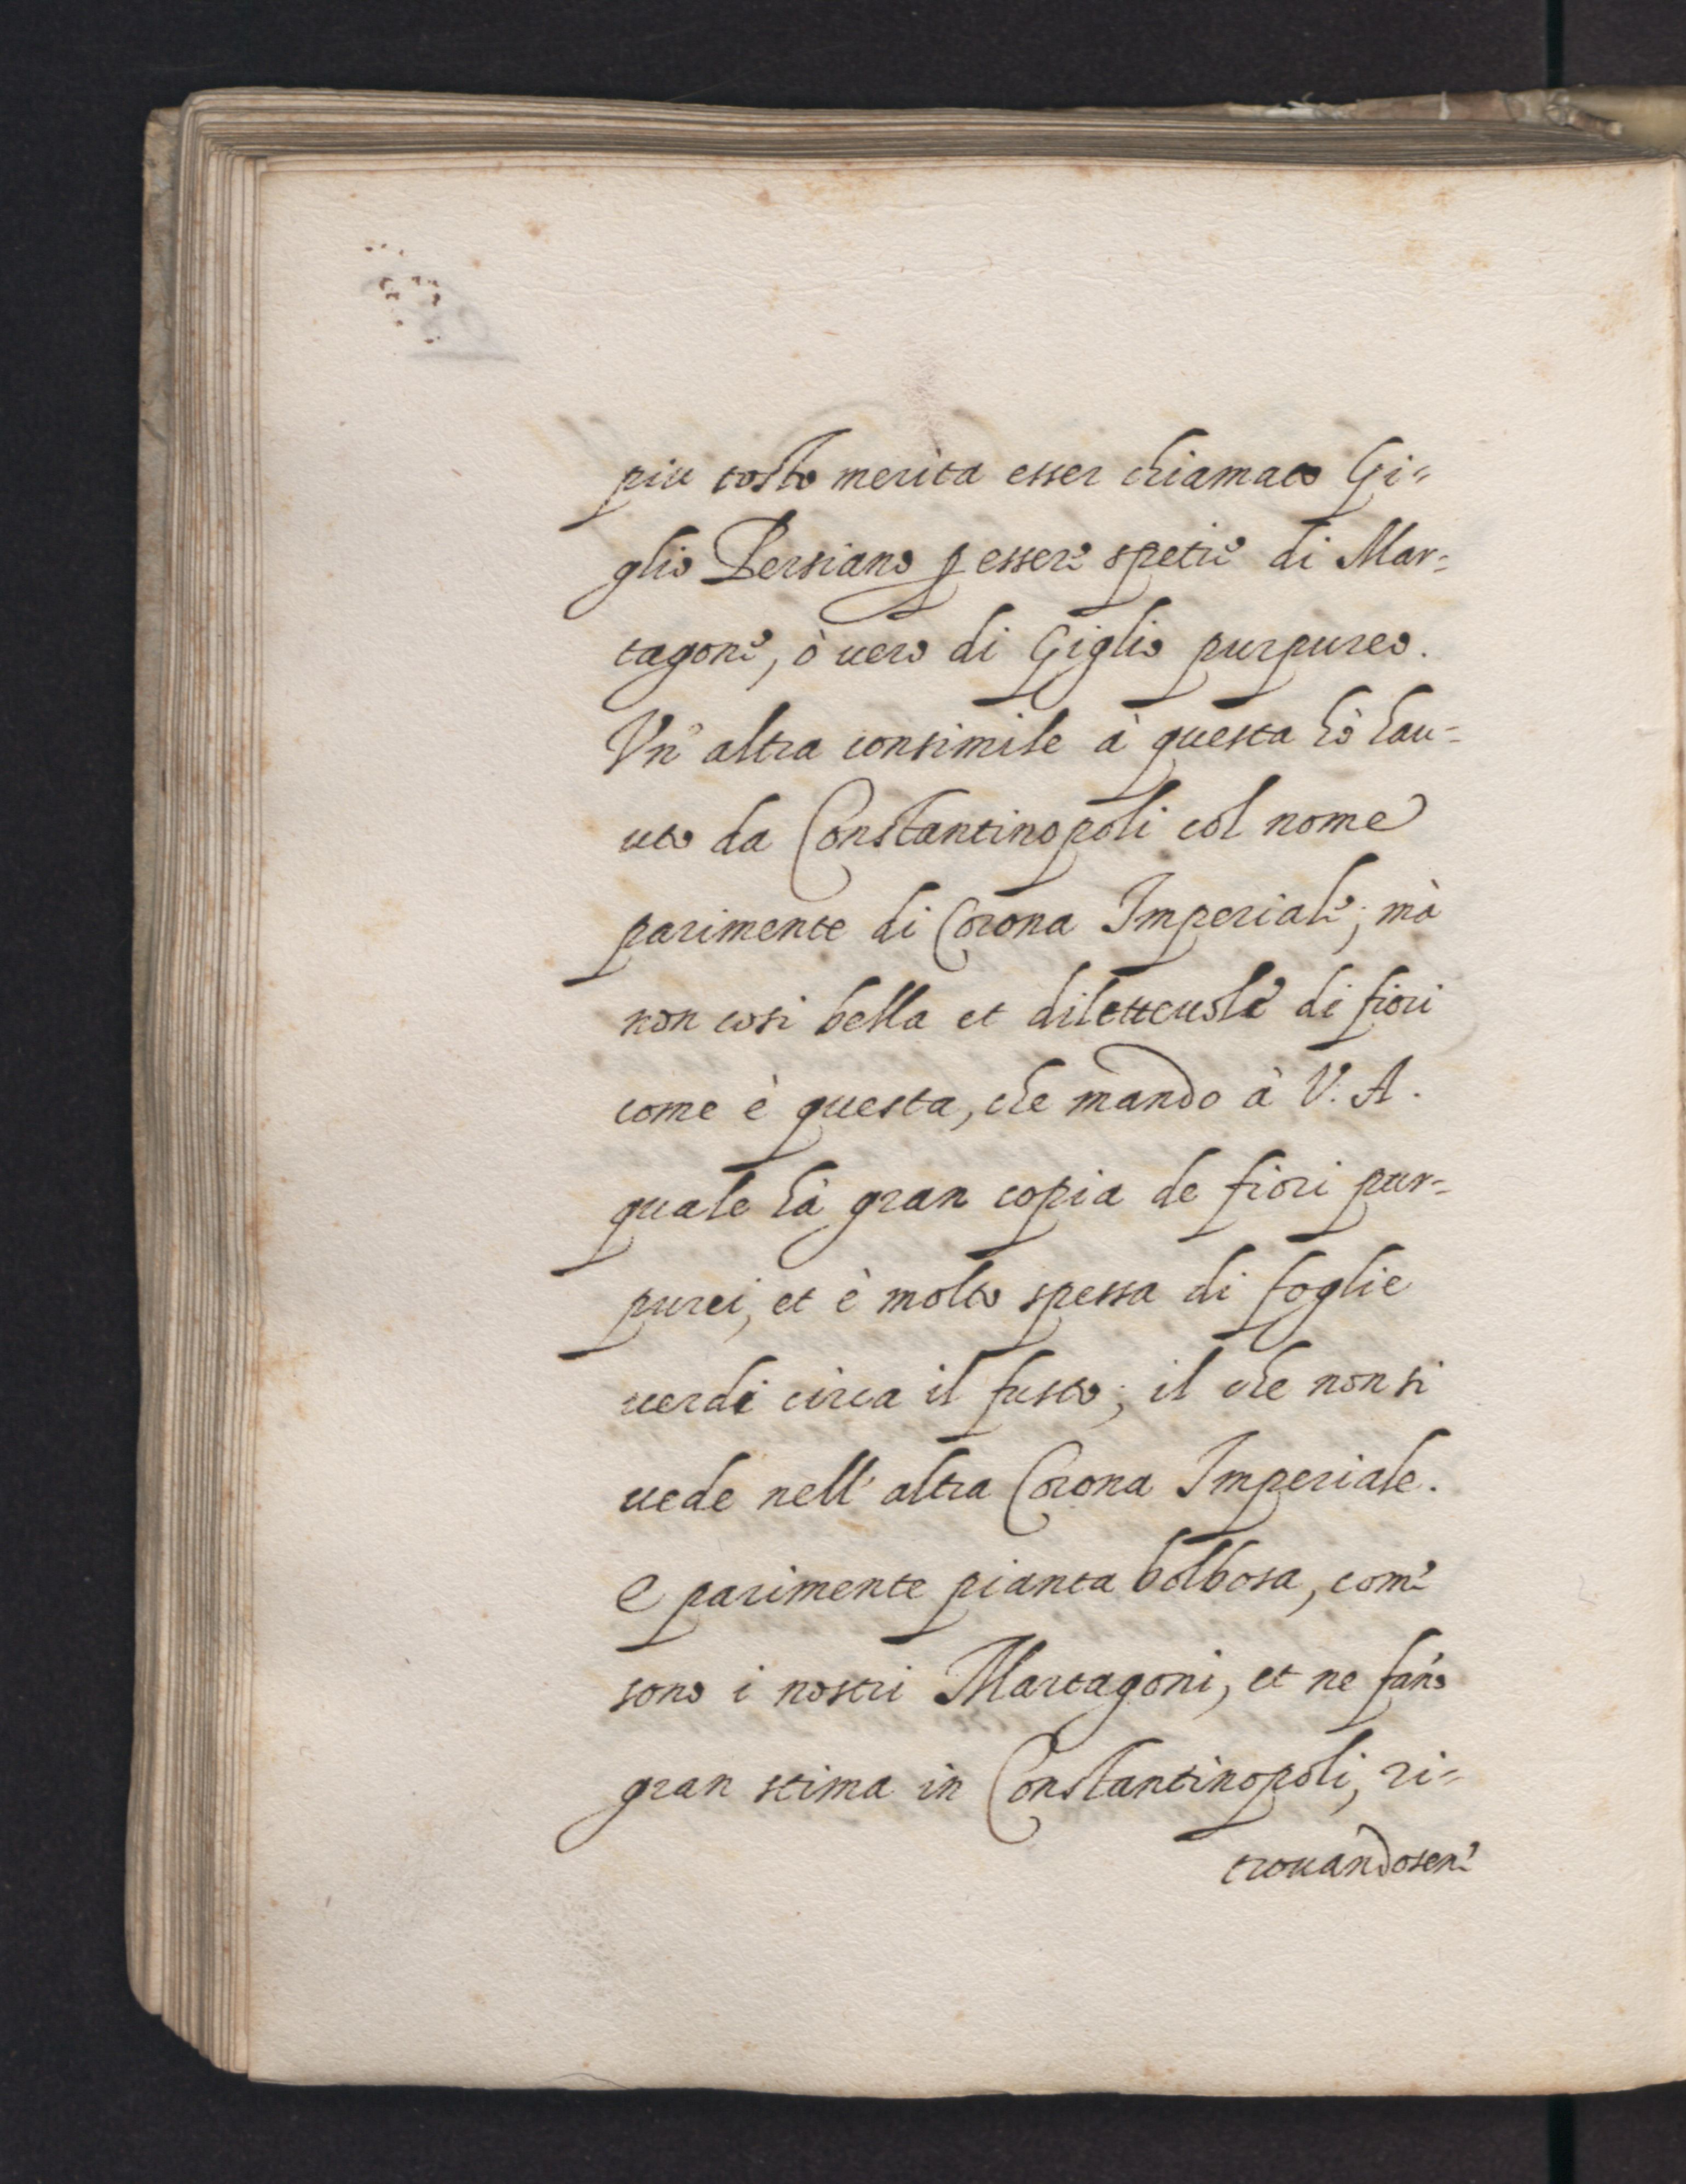 piu tosto merita esser chiamato Gi=
glio Persiano ꝑ essere spetie di Mar=
tagone, ò uero di Giglio purpureo.
Vn' altra consimile à questa hò hau=
uto da Constantinopoli col nome
parimente di Corona Imperiale; mà
non cosi bella et diletteuole di fiori
come è questa, che mando à V. A.
quale hà gran copia de fiori pur=
purei, et è molto spessa di foglie
uerdi circa il fusto; il che non si
uede nell' altra Corona Imperiale.
E parimente pianta bolbosa, come
sono i nostri Martagoni, et ne fan̄o
gran stima in Constantinopoli, ri=
trouandosene